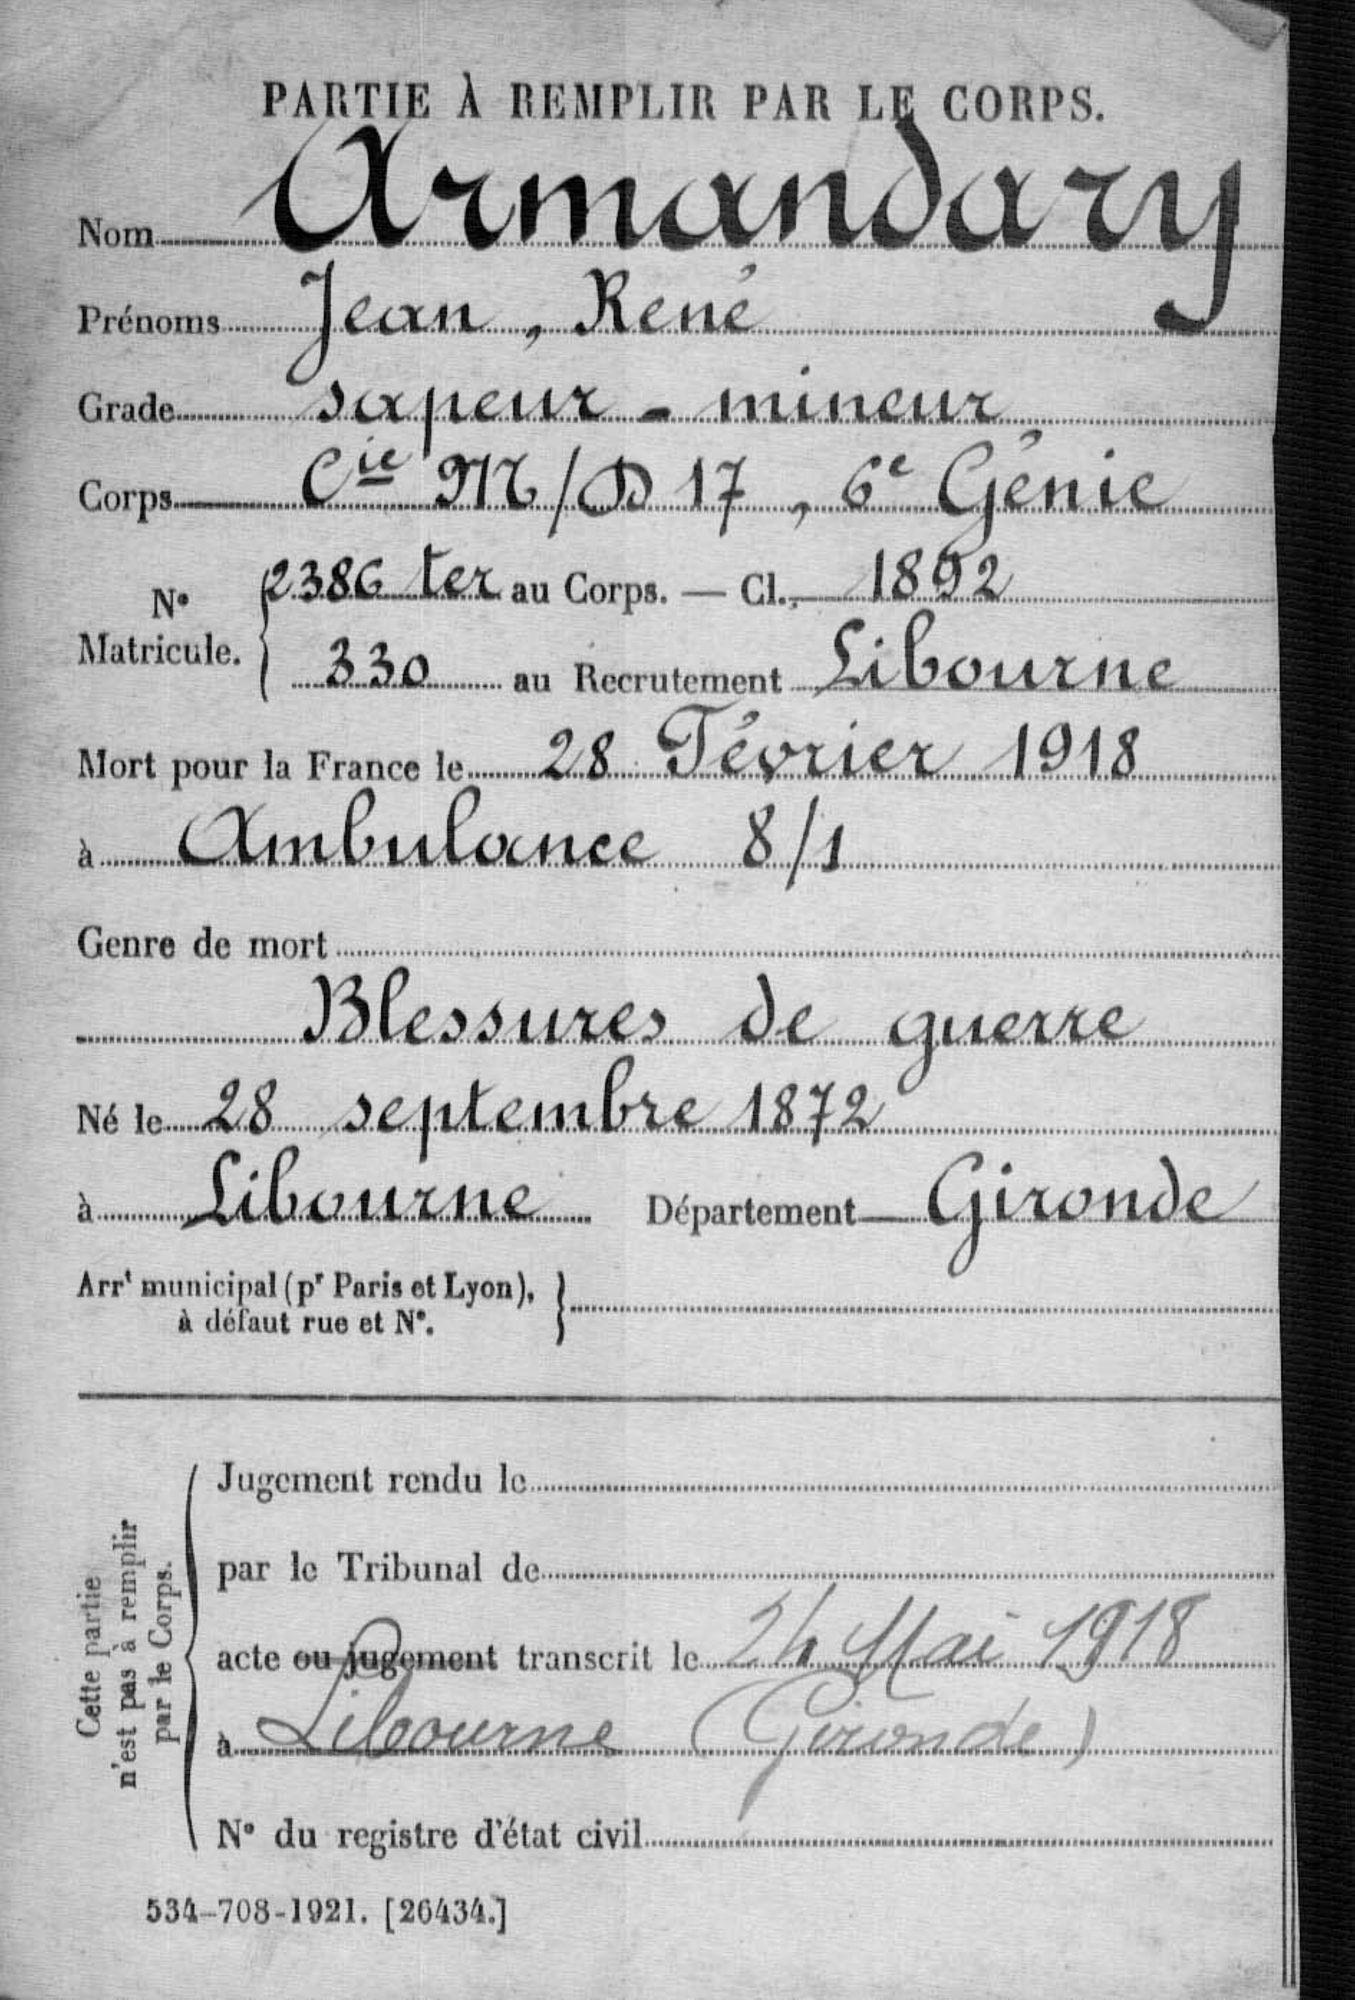 PARTIE À REMPLIR PAR LE CORPS.
Nom Armandary
Prénoms Jean, René
Grade sapeur - mineur
Corps Cie M/D 17, 6e Génie
N° Matricule. 2386 ter au Corps. — Cl. 1892
330 au Recrutement Libourne
Mort pour la France le 28 Février 1918
à Ambulance 8/1
Genre de mort
Blessures de guerre
Né le 28 septembre 1872
à Libourne Département Gironde
Arrt municipal (pr Paris et Lyon),
à défaut rue et N°.
Cette partie
n'est pas à remplir
par le Corps.
Jugement rendu le
par le Tribunal de
acte ou jugement transcrit le 24 Mai 1918
à Libourne (Gironde)
N° du registre d'état civil
534-708-1921. [26434.]